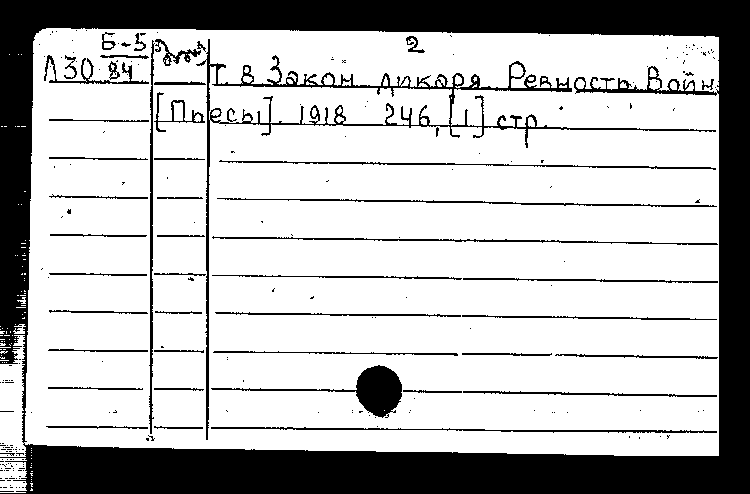 Б-5 2
Л30 84 Т 8 Закон дикаря. Ревность. Войн
[Пьесы]. 1918 246, [1] стр.